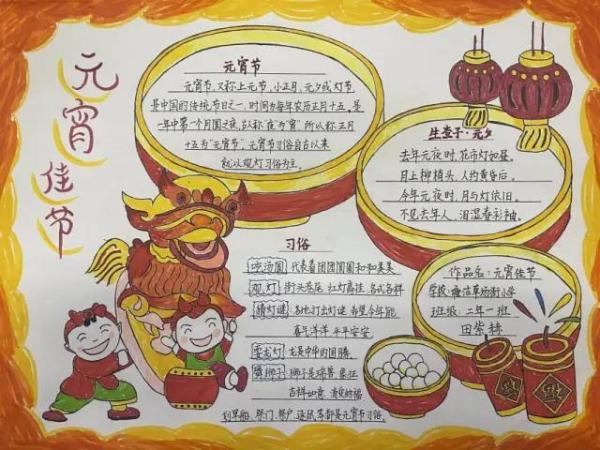 元宵佳节
元宵节
元宵节,又称上元节,小正月,元夕或灯节
是中国的传统节日之一,时间为每年农历正月十五,是
一年中第一个月圆之夜,古人称"夜"为"宵"所以称正月
十五为"元宵节",元宵节习俗自古以来
就以观灯习俗为主。
生查子·元夕
去年元夜时,花市灯如昼。
月上柳梢头,人约黄昏后。
今年元夜时,月与灯依旧。
不见去年人,泪湿春衫袖。
习俗
吃汤圆 代表着团团圆圆和和美美
观灯 街头巷尾 红灯高挂 各式各样
猜灯谜 各地打出灯谜 希望今年能
喜气洋洋 平平安安
耍龙灯 龙是中华的图腾。
舞狮子 狮子是瑞兽 象征
吉祥如意
划旱船、祭门、祭户、逐鼠等都是元宵节习俗。
作品名:元宵佳节
学校: 草场街小学
班级:二年一班
田紫
福
福